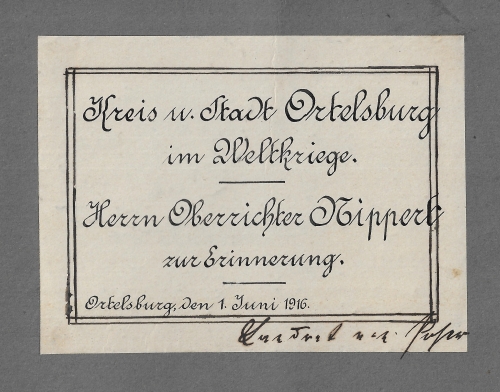 Kreis u. Stadt Ortelsburg
im Weltkriege.
Herrn Oberrichter Nippert
zur Erinnerung.
Ortelsburg, den 1. Juni 1916.
Landrat von Poser